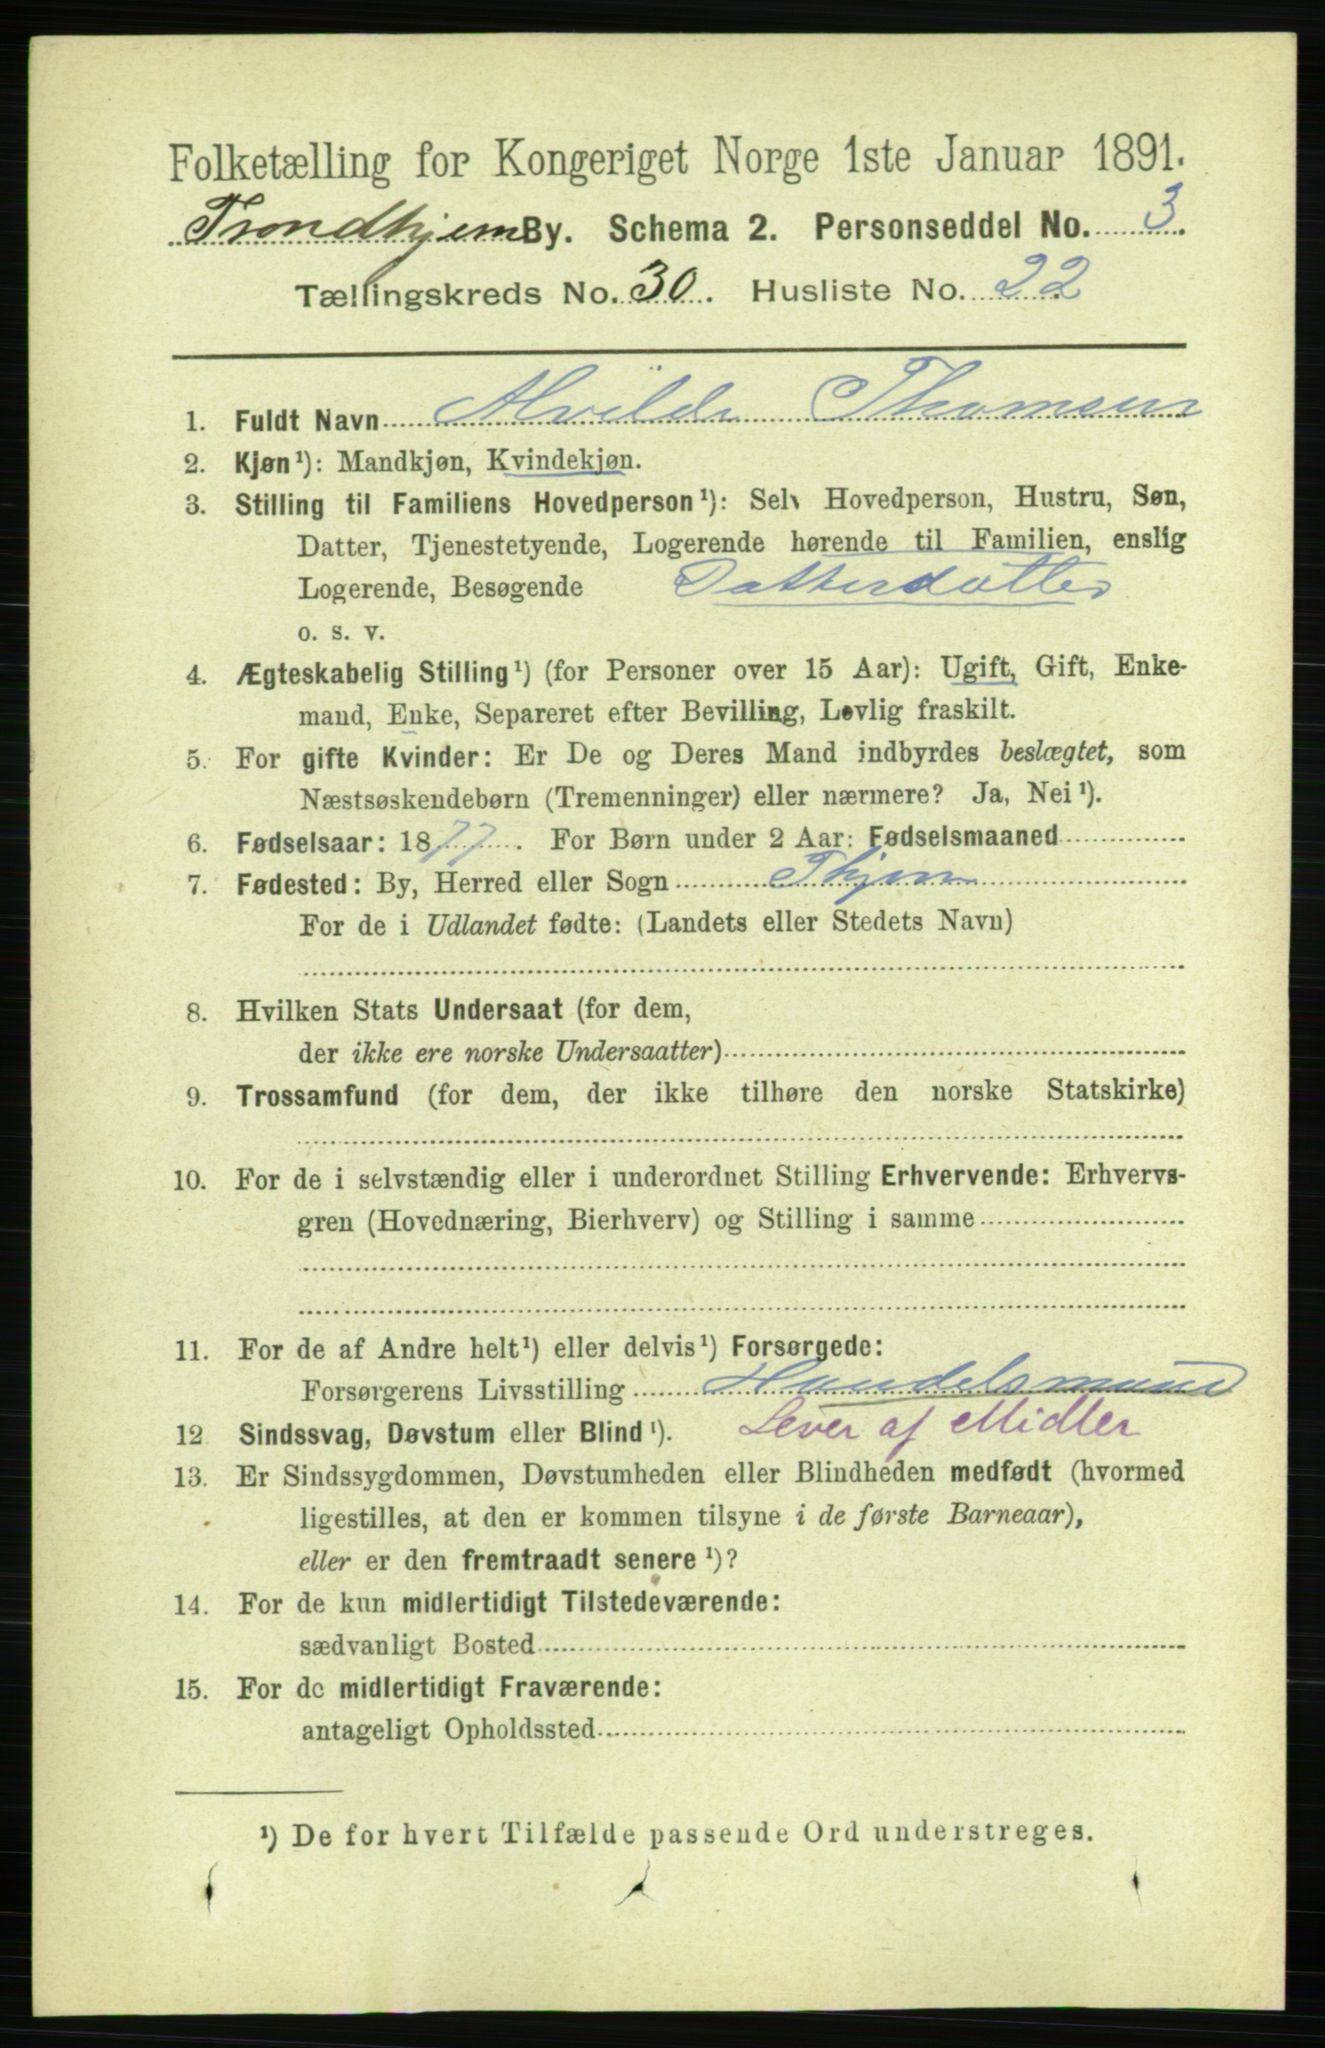 Folketælling for Kongeriget Norge 1ste Januar 1891.
Trondhjem By. Schema 2. Personseddel No. 3.
Tællingskreds No. 30. Husliste No. 22
1. Fuldt Navn Alvilde Thomsen
2. Kjøn¹): Mandkjøn, Kvindekjøn.
3. Stilling til Familiens Hovedperson¹): Selv Hovedperson, Hustru, Søn,
Datter, Tjenestetyende, Logerende hørende til Familien, enslig
Logerende, Besøgende Datterdatter
o. s. v.
4. Ægteskabelig Stilling¹) (for Personer over 15 Aar): Ugift, Gift, Enke-
mand, Enke, Separeret efter Bevilling, Lovlig fraskilt.
5. For gifte Kvinder: Er De og Deres Mand indbyrdes beslægtet, som
Næstsøskendebørn (Tremenninger) eller nærmere? Ja, Nei¹).
6. Fødselsaar: 1877. For Børn under 2 Aar: Fødselsmaaned
7. Fødested: By, Herred eller Sogn Thjem
For de i Udlandet fødte: (Landets eller Stedets Navn)
8. Hvilken Stats Undersaat (for dem,
der ikke ere norske Undersaatter)
9. Trossamfund (for dem, der ikke tilhøre den norske Statskirke)
10. For de i selvstændig eller i underordnet Stilling Erhvervende: Erhvervs-
gren (Hovednæring, Bierhverv) og Stilling i samme
11. For de af Andre helt¹) eller delvis¹) Forsørgede:
Forsørgerens Livsstilling Handelsmand
12 Sindssvag, Døvstum eller Blind¹). Lever af Midler
13. Er Sindssygdommen, Døvstumheden eller Blindheden medfødt (hvormed
ligestilles, at den er kommen tilsyne i de første Barneaar),
eller er den fremtraadt senere¹)?
14. For de kun midlertidigt Tilstedeværende:
sædvanligt Bosted
15. For de midlertidigt Fraværende:
antageligt Opholdssted
¹) De for hvert Tilfælde passende Ord understreges.